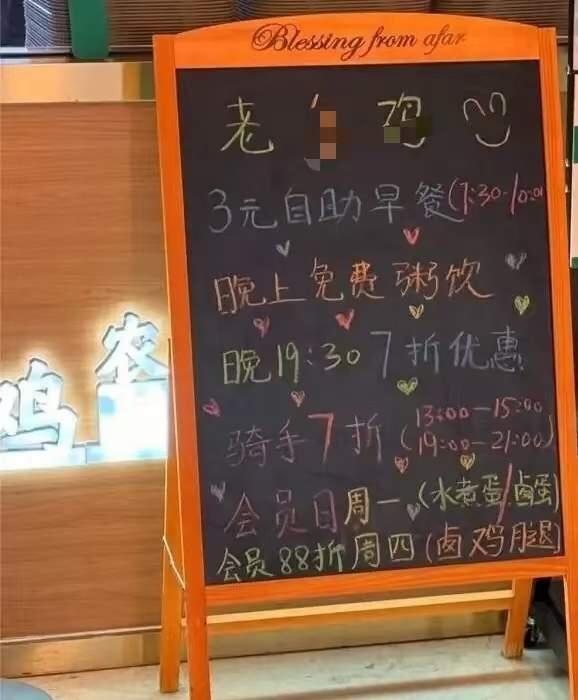 Blessing from afar
老 鸡
3元自助早餐(7:30-10:00
晚上免费粥饮
晚19:30 7折优惠
骑手7折(13:00-15:00
19:00-21:00)
会员日周一(水煮蛋/卤蛋)
会员88折周四(卤鸡腿)
鸡 农